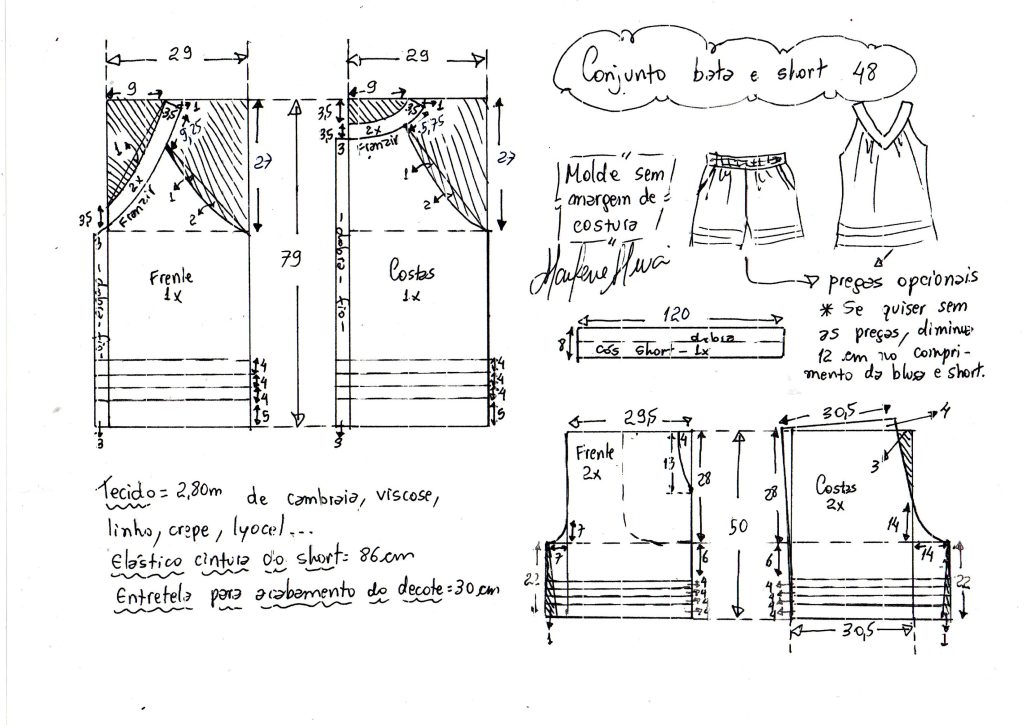 Conjunto bata e short 48
29
9
3,5
1
9,25
27
1
2x
Franzir
1
2
3,5
3
dobra - fio
Frente
1x
4
4
4
5
3
79
29
9
3,5
3,5
3,5
1
5,75
2x
Franzir
3
27
1
2
dobra - fio
Costas
1x
4
4
4
5
3
"Molde sem
margem de
costura"
Marlene Mukai
pregas opcionais
* Se quiser sem
as pregas, diminua
12 cm no compri-
mento da blusa e short.
120
8
dobra
cós short - 1x
Tecido = 2,80m de cambraia, viscose,
linho, crepe, lyocel...
Elástico cintura do short = 86cm
Entretela para acabamento do decote = 30cm
29,5
Frente
2x
4
13
28
7
7
6
22
4
4
4
4
1
50
30,5
4
3
Costas
2x
28
14
14
6
22
4
4
4
4
30,5
1